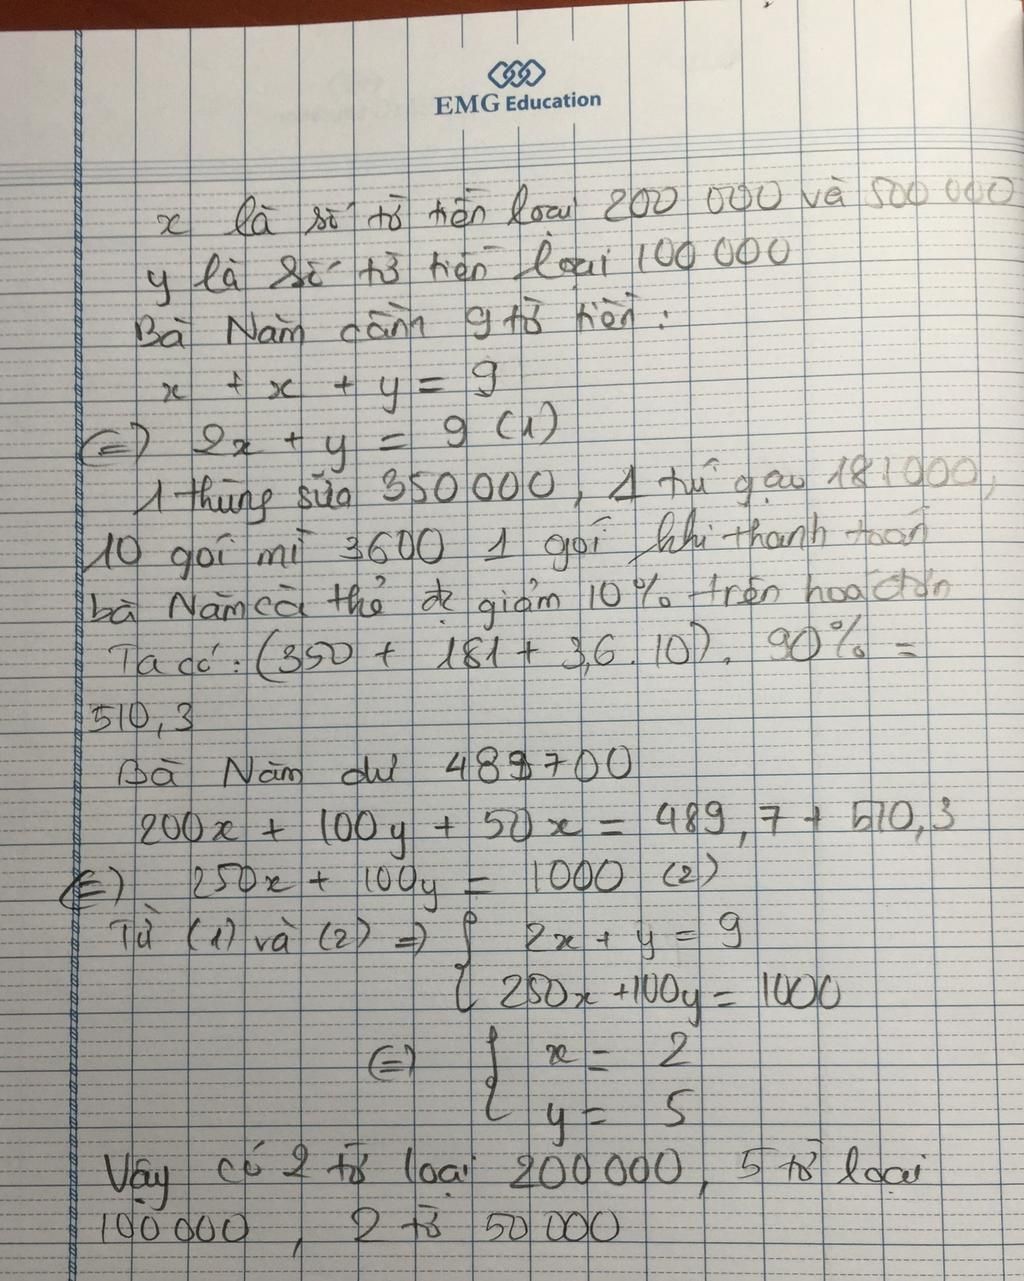 EMG Education
x là số tờ tiền loại 200 000 và 500 000
y là số tờ tiền loại 100 000
Bà Năm dành 9 tờ tiền:
x + x + y = 9
(=) 2x + y = 9 (1)
1 thùng sữa 350000, 1 túi gạo 181000,
10 gói mì 3600 1 gói khi thanh toán
bà Năm có thẻ đc giảm 10% trên hoá đơn
Ta có: (350 + 181 + 3,6 . 10). 90% =
510,3
Bà Năm dư 489700
200x + 100y + 50x = 489,7 + 510,3
(=) 250x + 100y = 1000 (2)
Từ (1) và (2) => { 2x + y = 9
{ 250x +100y = 1000
(=) { x = 2
{ y = 5
Vậy có 2 tờ loại 200 000, 5 tờ loại
100 000, 2 tờ 50 000